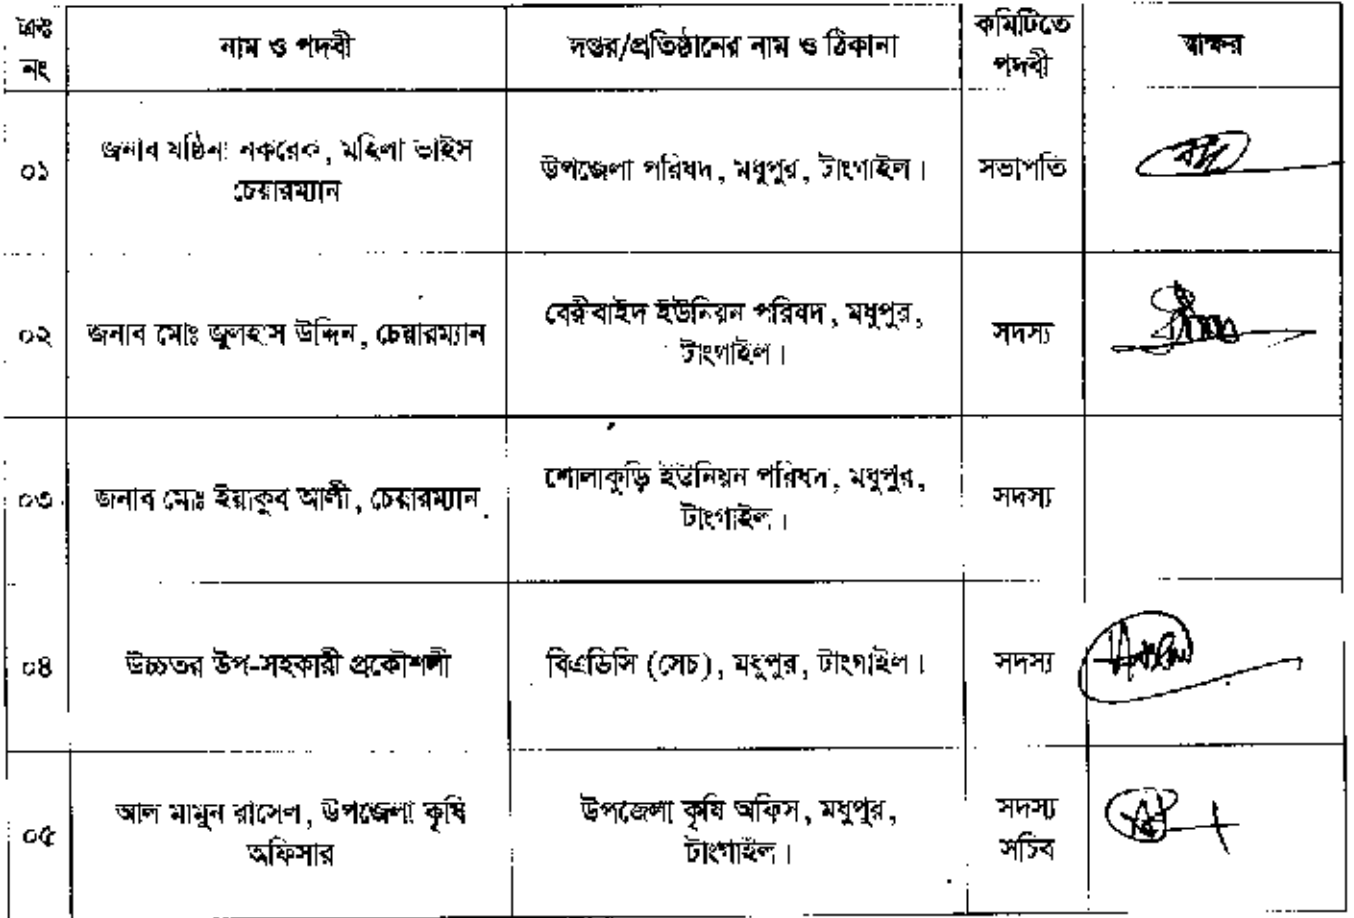 ক্রঃ নং
নাম ও পদবী
দপ্তর/প্রতিষ্ঠানের নাম ও ঠিকানা
কমিটিতে পদবী
স্বাক্ষর
০১
জনাব যষ্ঠিনা নকরেক, মহিলা ভাইস
চেয়ারম্যান
উপজেলা পরিষদ, মধুপুর, টাংগাইল।
সভাপতি
০২
জনাব মোঃ জুলহাস উদ্দিন, চেয়ারম্যান
বেরীবাইদ ইউনিয়ন পরিষদ, মধুপুর,
টাংগাইল।
সদস্য
০৩
জনাব মোঃ ইয়াকুব আলী, চেয়ারম্যান
শোলাকুড়ি ইউনিয়ন পরিষদ, মধুপুর,
টাংগাইল।
সদস্য
০৪
উচ্চতর উপ-সহকারী প্রকৌশলী
বিএডিসি (সেচ), মধুপুর, টাংগাইল।
সদস্য
০৫
আল মামুন রাসেল, উপজেলা কৃষি
অফিসার
উপজেলা কৃষি অফিস, মধুপুর,
টাংগাইল।
সদস্য
সচিব